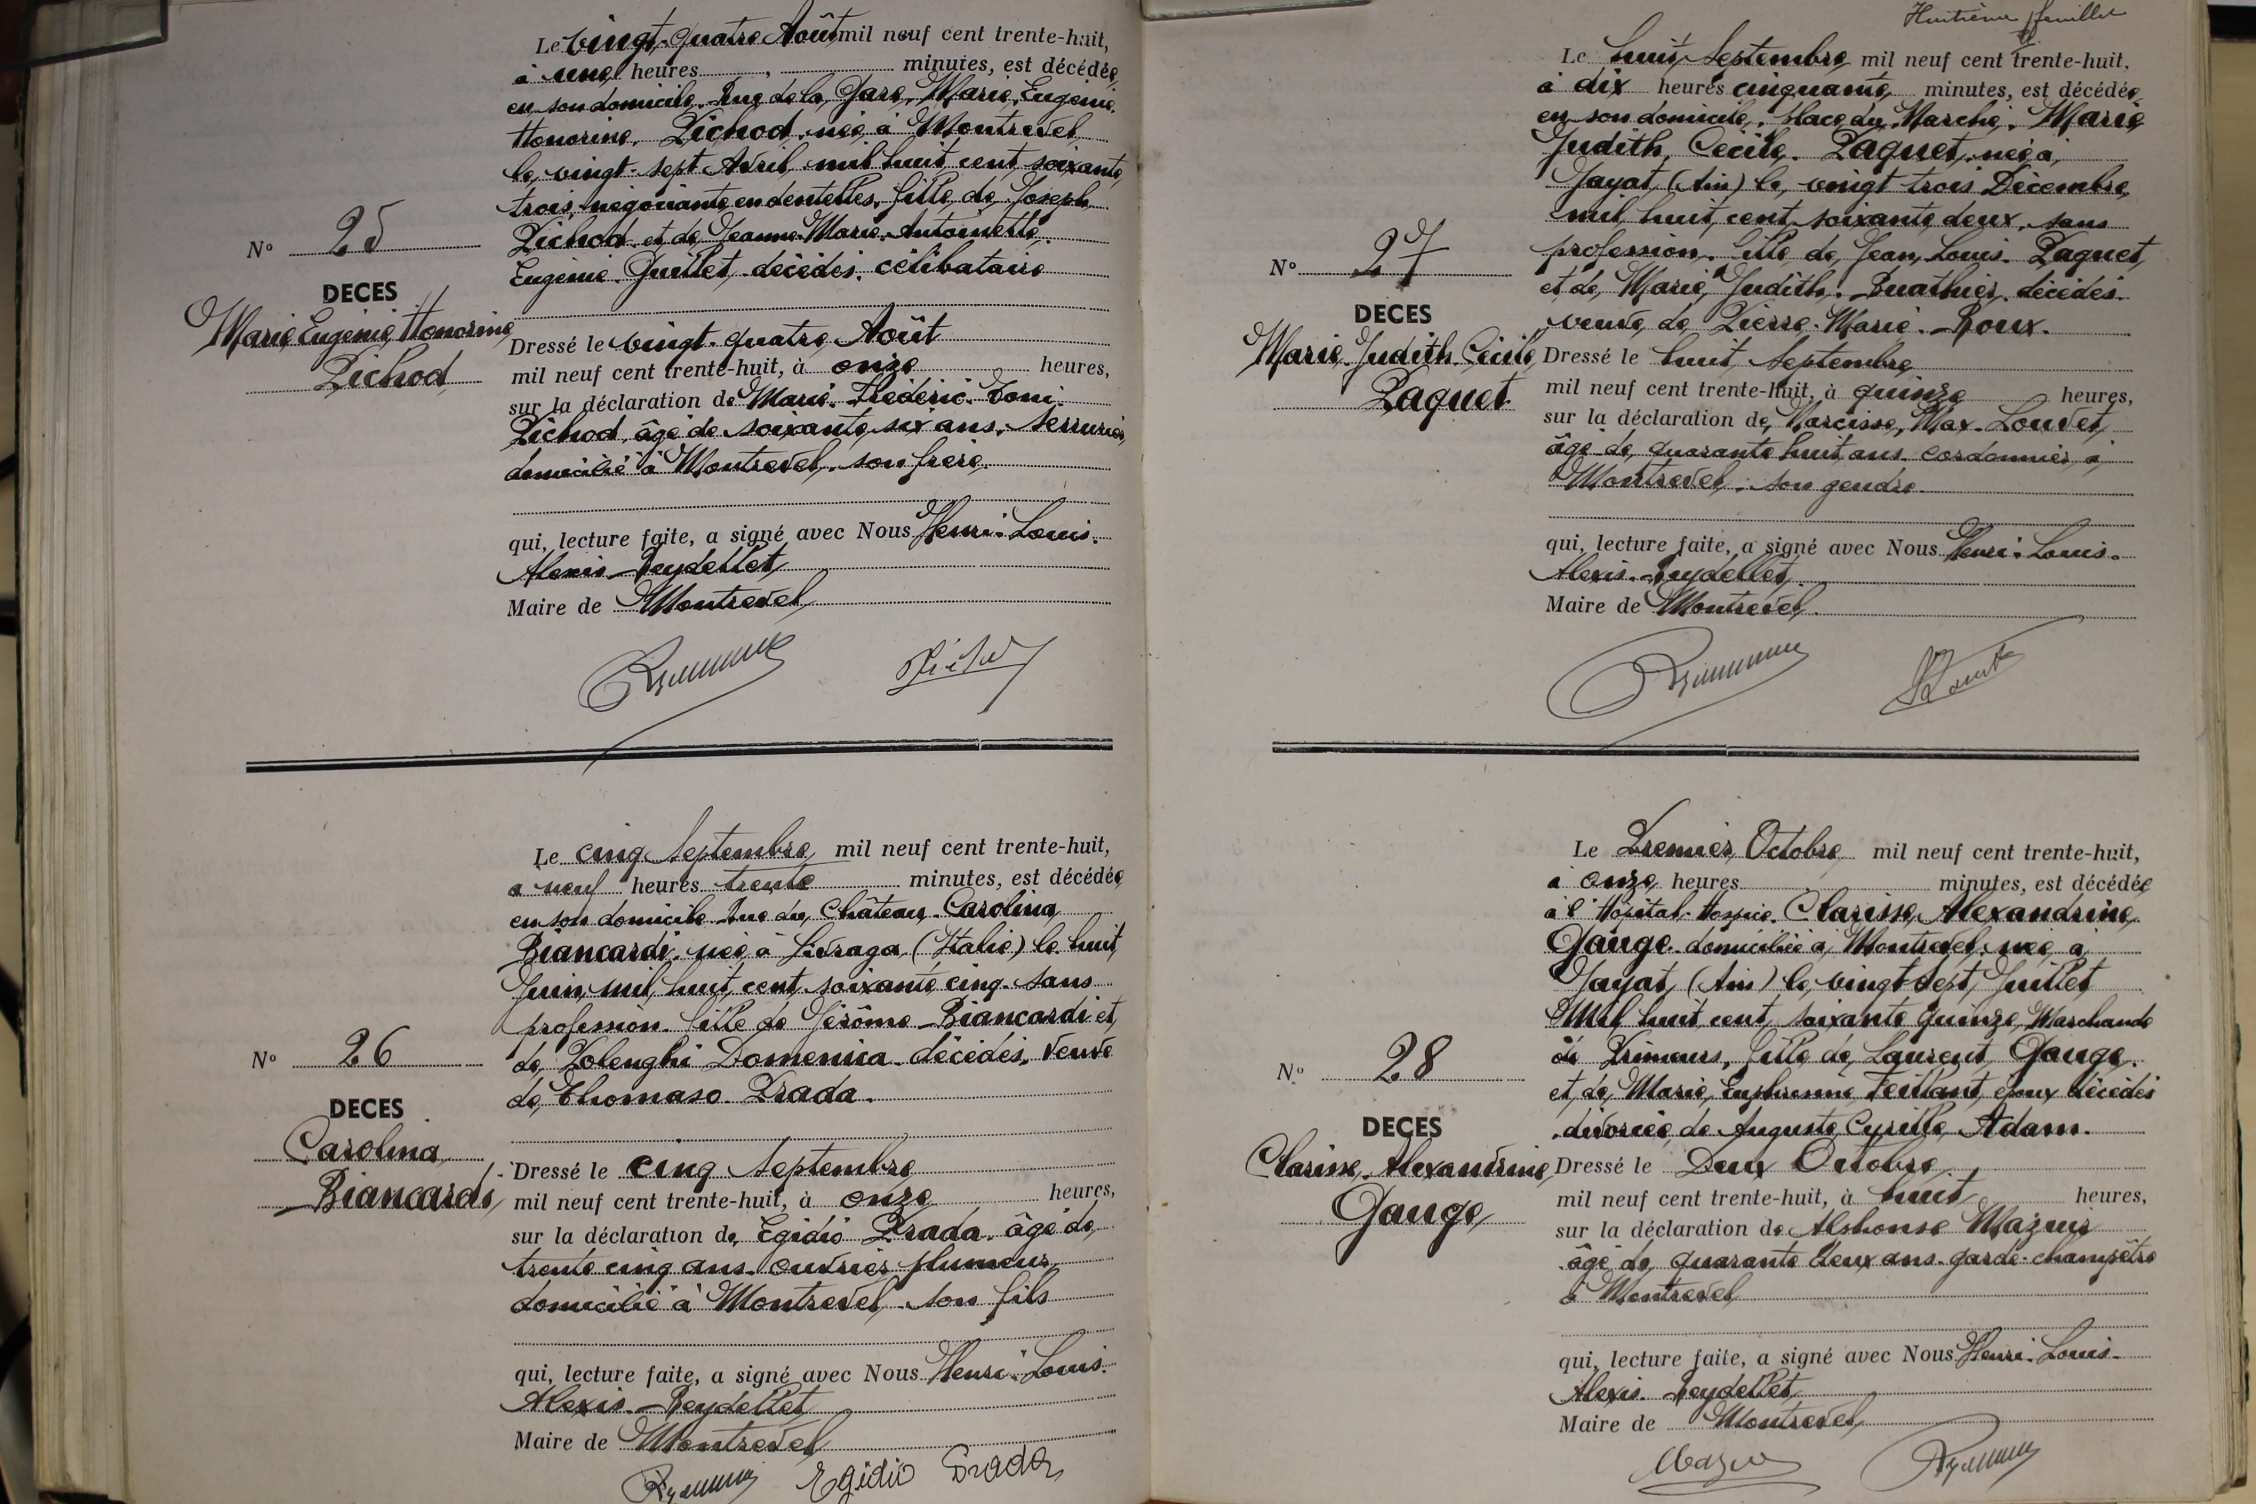 Le vingt-quatre Août mil neuf cent trente-huit,
à une heures minutes, est décédée
en son domicile. Rue de la Gare. Marie. Eugénie.
Honorine. Pichod. née à Montrevel
le vingt-sept Avril mil huit cent soixante
trois, négociante en dentelles. fille de Joseph
Pichod et de Jeanne-Marie. Antoinette.
Eugénie. Juillet. décédés. célibataire
N° 25
DECES
Marie Eugénie Honorine
Pichod
Dressé le vingt-quatre Août
mil neuf cent trente-huit, à onze heures,
sur la déclaration de Marie. Frédéric. Toni.
Pichod, âgé de soixante six ans. serrurier
domicilié à Montrevel. son frère.
qui, lecture faite, a signé avec Nous Henri-Louis.
Alexis Reydellet
Maire de Montrevel
Le cinq Septembre mil neuf cent trente-huit,
à neuf heures trente minutes, est décédée
en son domicile Rue du Château. Carolina
Biancardi. née à Livraga (Italie) le huit
Juin mil huit cent soixante cinq. sans
profession. fille de Jérôme Biancardi et
de Polenghi Domenica décédés. veuve
de Thomaso Prada.
N° 26
DECES
Carolina
Biancardi
Dressé le cinq Septembre
mil neuf cent trente-huit, à onze heures,
sur la déclaration de Egidio Prada. âgé de
trente cinq ans. ouvrier plumeur
domicilié à Montrevel. son fils
qui, lecture faite, a signé avec Nous Henri-Louis.
Alexis Reydellet
Maire de Montrevel
Egidio Prada
Huitième feuillet
Le huit Septembre mil neuf cent trente-huit,
à dix heures cinquante minutes, est décédée
en son domicile. place du Marché. Marie
Judith. Cécile. Paquet. née à
Jayat (Ain) le vingt trois Décembre
mil huit cent soixante deux. sans
profession. fille de Jean Louis. Paquet
et de Marie Judith. Buathier. décédés.
veuve de Pierre-Marie. Roux.
N° 27
DECES
Marie-Judith-Cécile
Paquet
Dressé le huit Septembre
mil neuf cent trente-huit, à quinze heures,
sur la déclaration de Narcisse, Max. Louvet
âgé de quarante huit ans cordonnier à
Montrevel. son gendre.
qui, lecture faite, a signé avec Nous Henri-Louis.
Alexis. Reydellet.
Maire de Montrevel.
Le Premier Octobre mil neuf cent trente-huit,
à onze heures minutes, est décédée
à l'Hôpital-Hospice. Clarisse Alexandrine
Gauge. domiciliée à Montrevel. née à
Jayat (Ain) le vingt sept Juillet
Mil huit cent soixante quinze Marchande
de Primeurs, fille de Laurent Gauge.
et de Marie, Euphrosine Feillant époux décédés
divorcée de Auguste Cyrille Adam.
N° 28
DECES
Clarisse. Alexandrine
Gauge
Dressé le Deux Octobre
mil neuf cent trente-huit, à huit heures,
sur la déclaration de Alphonse Mazuir
âgé de quarante deux ans. garde-champêtre
à Montrevel
qui, lecture faite, a signé avec Nous Henri-Louis
Alexis. Reydellet
Maire de Montrevel